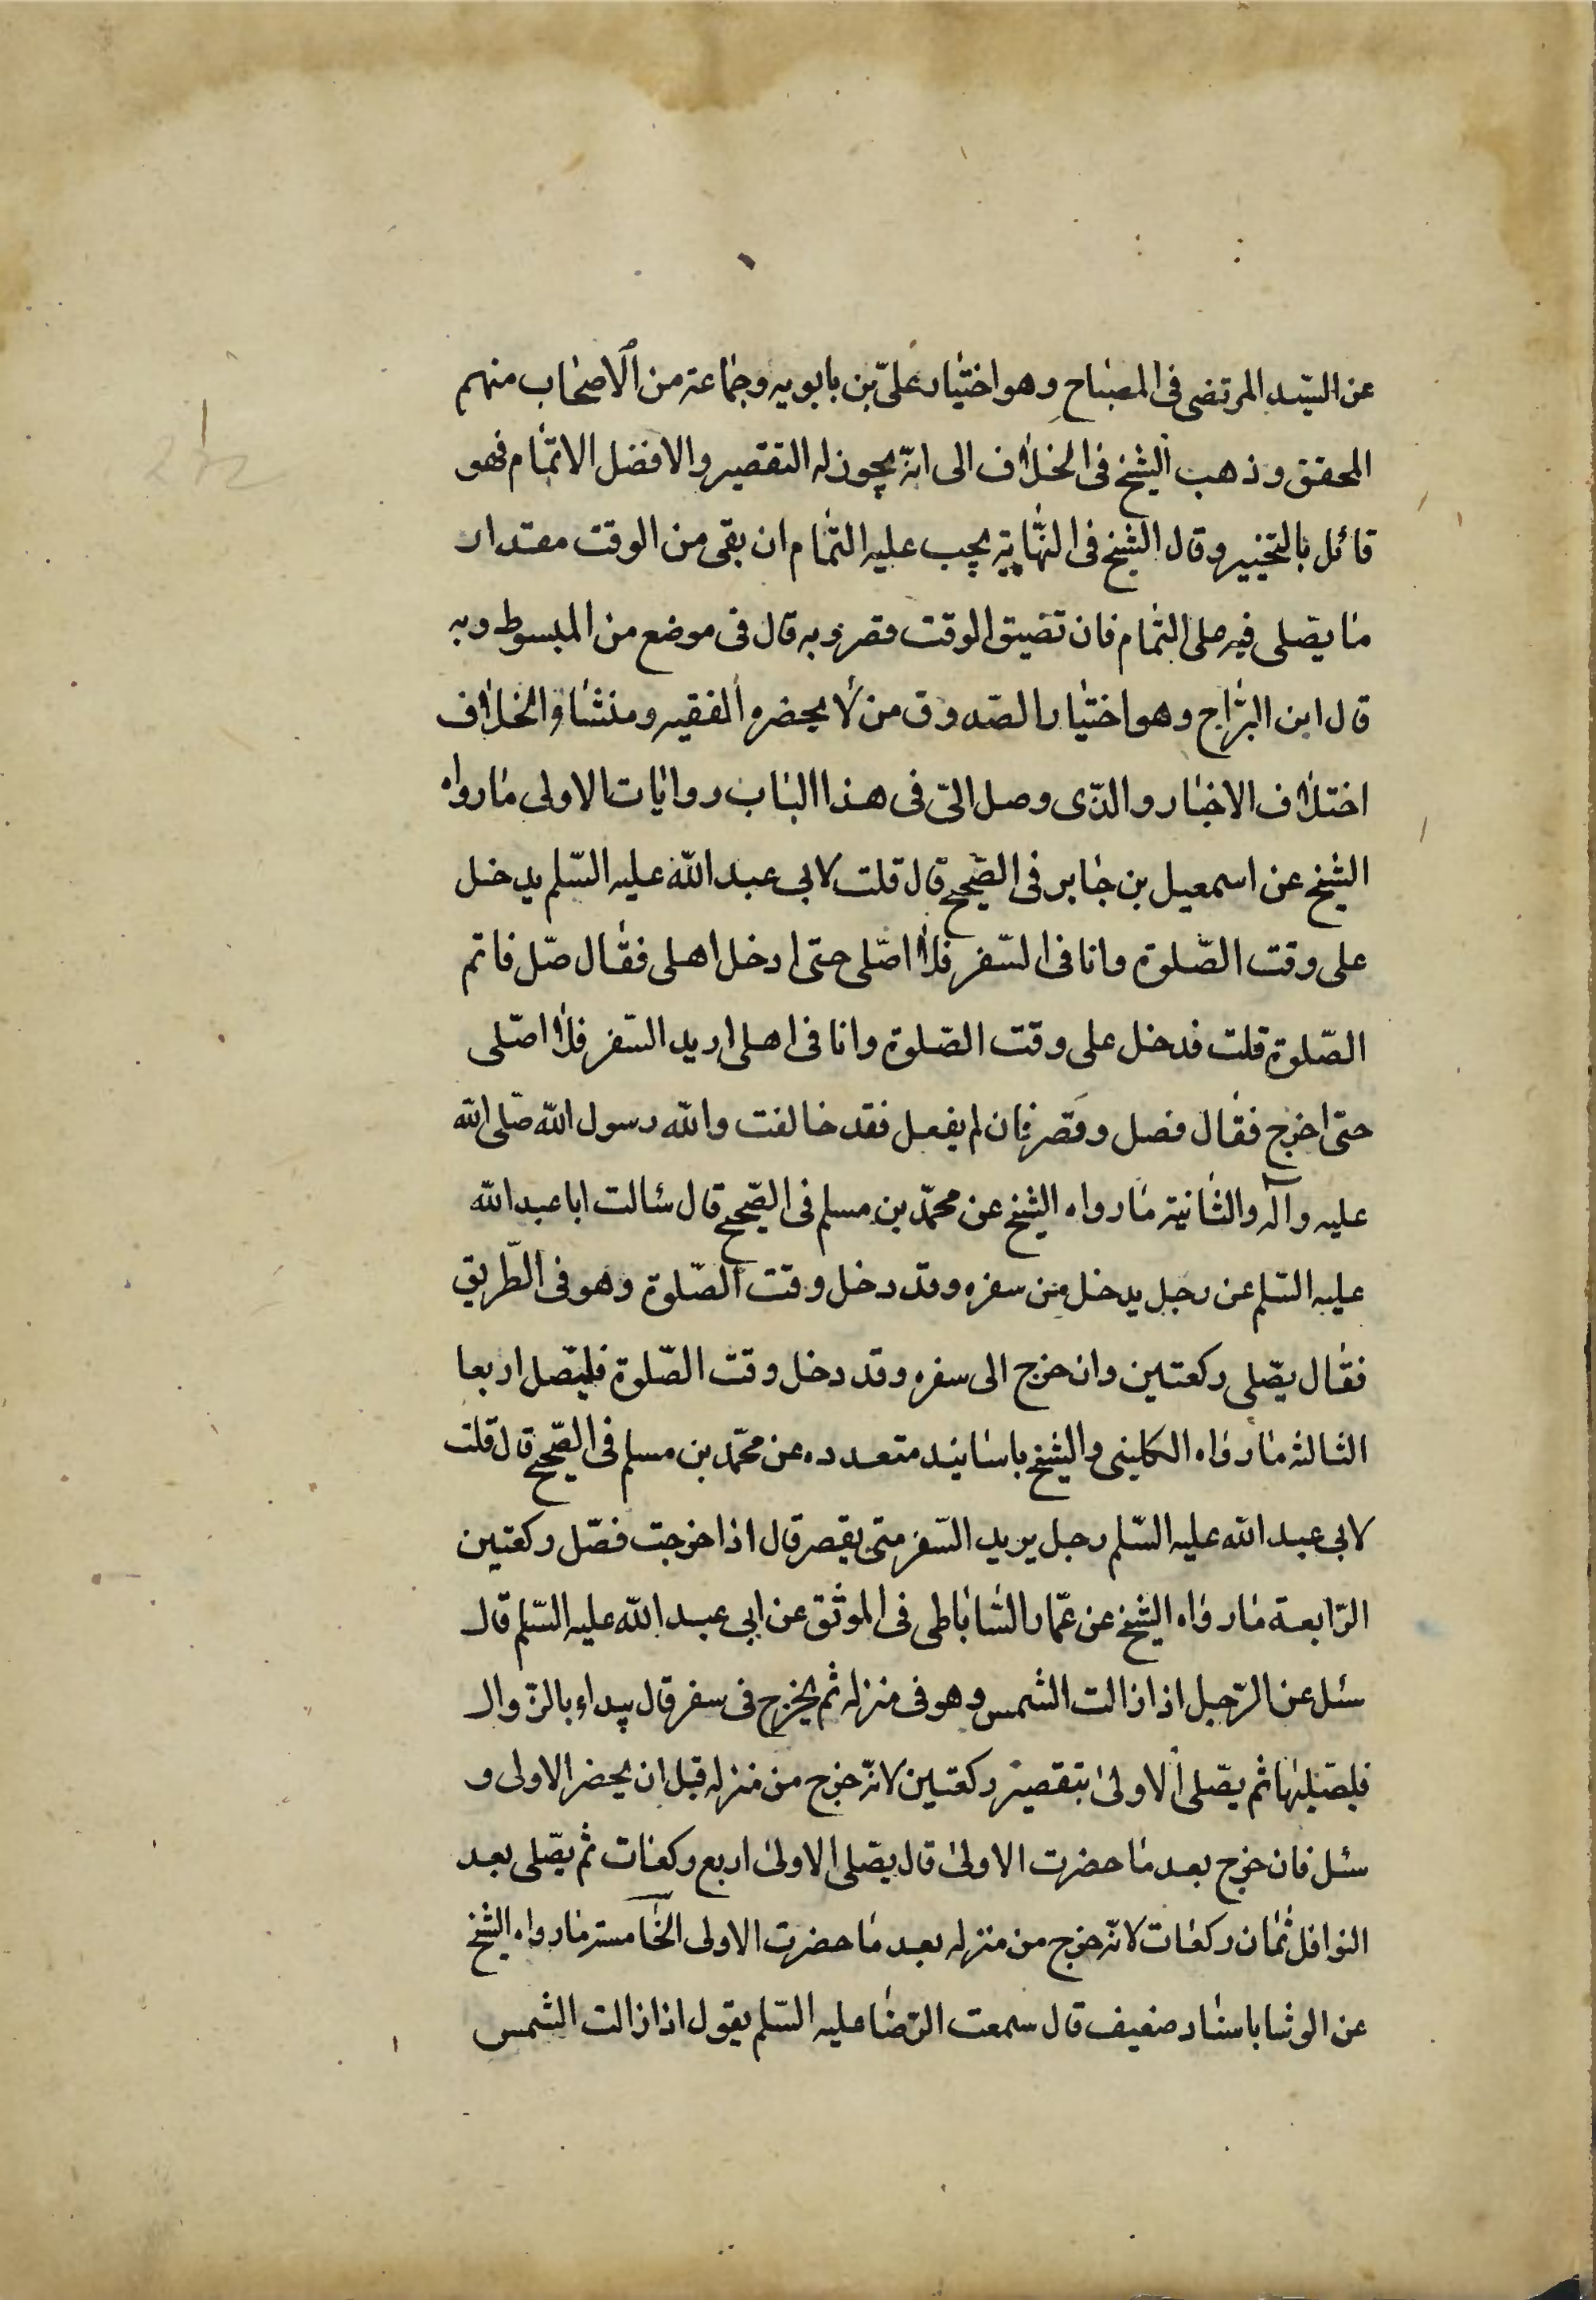 عن السّيد المرتضى فى المصباح وهو اختيار علىّ بن بابويه وجماعة من الاصحاب منهم
المحقق وذهب الشيخ فى الخلاف الى انّه يجوز له التقصير والافضل الاتمام فهو
قائل بالتخيير وقال الشيخ فى النّهاية يجب عليه التمام ان بقى من الوقت مقدار
ما يصّلى فيه على التمام فان تضيق الوقت قصر وبه قال فى موضع من المبسوط وبه
قال ابن البرّاج وهو اختيار الصّدوق من لا يحضره الفقيه ومنشاؤ الخلاف
اختلاف الاخبار والذّى وصل الىّ فى هذا الباب روايات الاولى ما رواه
الشيخ عن اسمعيل بن جابر فى الصّحيح قال قلت لابى عبد اللّه عليه السّلم يدخل
على وقت الصّلوة وانا فى السّفر فلا اصّلى حتى ادخل اهلى فقال صّل فاتم
الصّلوة قلت فدخل على وقت الصّلوة وانا فى اهلى اريد السّفر فلا اصّلى
حتّى اخرج فقال فصل وقصّر فان لم يفعل فقد خالفت واللّه رسول اللّه صّلى اللّه
عليه وآله والثانية ما رواه الشيخ عن محمّد بن مسلم فى الصّحيح قال سئالت ابا عبد اللّه
عليه السّلم عن رجل يدخل من سفره وقد دخل وقت الصّلوة وهو فى الطّريق
فقال يصّلى ركعتين وان خرج الى سفره وقد دخل وقت الصّلوة فليصّل اربعا
الثالثه ما رواه الكلينى والشيخ باسانيد متعدده عن محمّد بن مسلم فى الصّحيح قال قلت
لابى عبد اللّه عليه السّلم رجل يريد السّفر متى يقصر قال اذا خرجت فصّل ركعتين
الرّابعة ما رواه الشيخ عن عمّار السّاباطى فى الموثق عن ابى عبد اللّه عليه السّلم قال
سئل عن الرّجل اذا زالت الشمس وهو فى منزله ثم يخرج فى سفر قال يبداء بالزّوال
فليصّليها ثم يصّلى الاولى بتقصير ركعتين لانّه خرج من منزله قبل ان يحضر الاولى و
سئل فان خرج بعد ما حضرت الاولى قال يصّلى الاولى اربع ركعات ثم يصّلى بعد
النوافل ثمان ركعات لانّه خرج من منزله بعد ما حضرت الاولى الخامسة ما رواه الشيخ
عن الوشا باسناد ضعيف قال سمعت الرّضا عليه السّلم يقول اذا زالت الشمس